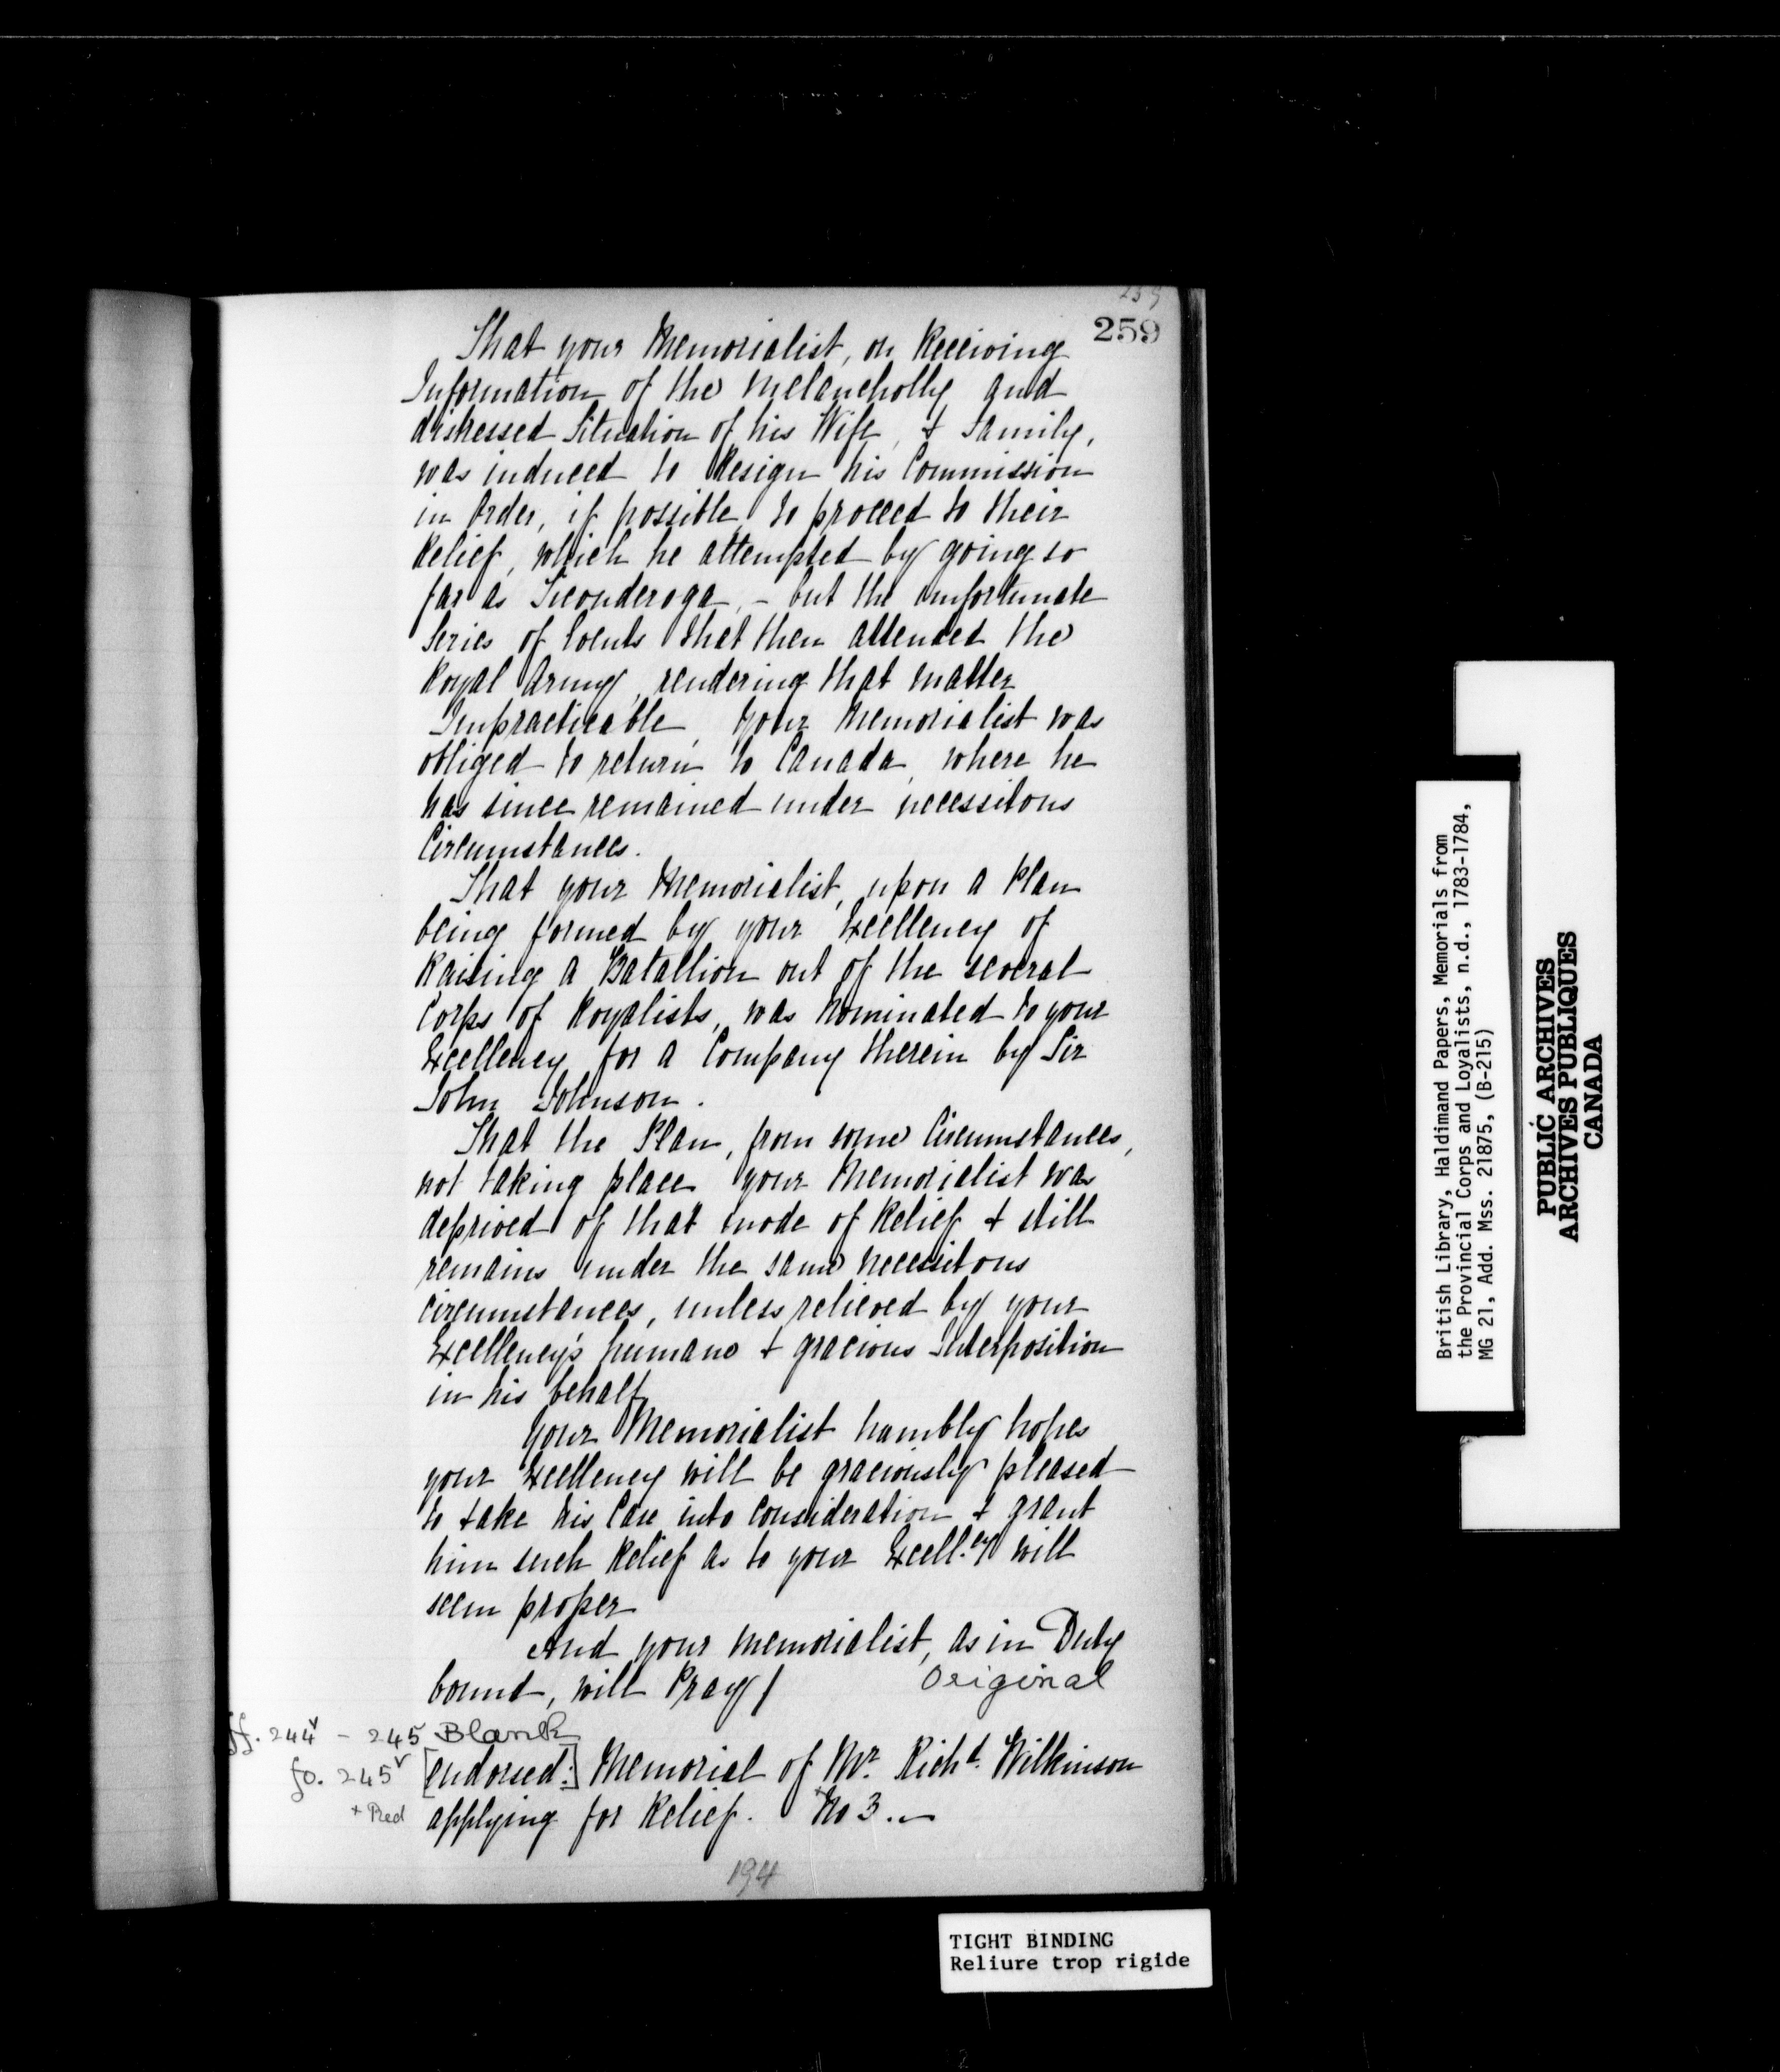 259
259
That your Memorialist, on Receiving
Information of the Melancholly and
distressed Situation of his Wife, & family,
was induced to Resign his Commission
in Order, if possible, to proceed to their
Relief, which he attempted by going so
far as Ticonderoga, – but the unfortunate
Series of Events that then attended the
Royal Army, rendering that matter
Impracticable, your Memorialist was
obliged to return to Canada, where he
has since remained under necessitous
Circumstances.
That your Memorialist, upon a Plan
being formed by your Excellency of
Raising a Batallion out of the several
Corps of Royalists, was Nominated to your
Excellency for a Company therein by Sir
John Johnson.
That the Plan, from some Circumstances,
not taking place your Memorialist was
deprived of that mode of Relief & still
remains under the same necessitous
circumstances, unless relieved by your
Excellency's humane & gracious Interposition
in his behalf
Your Memorialist humbly hopes
your Excellency will be graciously pleased
to take his Case into Consideration & grant
him such Relief as to your Excell.cy will
seem proper
And your memorialist, as in Duty
bound, will Pray/
Original
ff. 244v – 245 Blank
fo. 245v [endorsed:] Memorial of Mr. Richd. Wilkinson
+ Red applying for Relief. No 3.–
194
British Library, Haldimand Papers, Memorials from
the Provincial Corps and Loyalists, n.d., 1783-1784,
MG 21, Add. Mss. 21875, (B-215)
PUBLIC ARCHIVES
ARCHIVES PUBLIQUES
CANADA
TIGHT BINDING
Reliure trop rigide